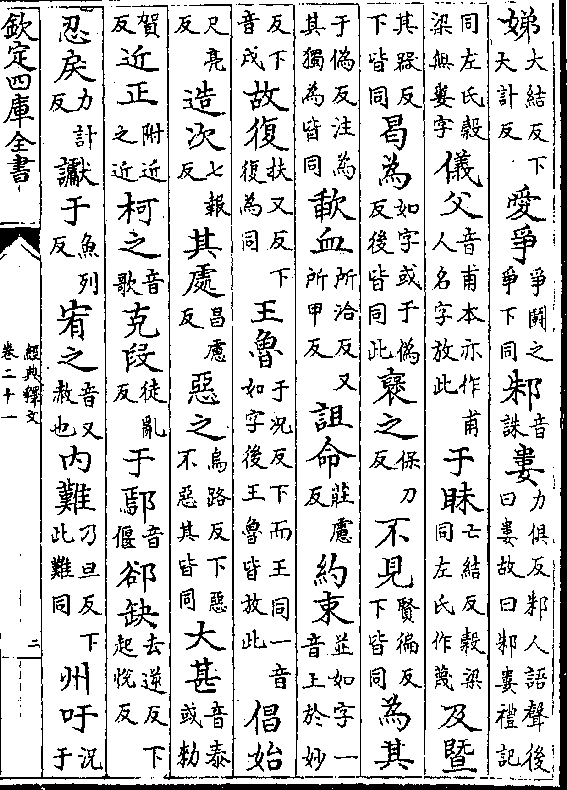 娣大結反下天計反愛爭爭鬭之爭下同邾音誅婁力俱反邾人語聲後曰婁故曰邾婁禮記
同左氏榖梁無婁字儀父音甫本亦作甫人名字放此于昧亡結反榖梁同左氏作蔑及暨
其器反下皆同曷為如字或于偽反後皆同此褒之保刀反不見賢徧反下皆同為其
于偽反注為其獨為皆同歃血所洽反又所甲反詛命莊慮反約束並如字一音上於妙
反下音戍故復扶又反下復為同王魯于况反下而王同一音如字後王魯皆放此倡始
尺亮反造次七報反其處昌慮反惡之烏路反下惡不惡其皆同大甚音泰或勑
賀反近正附近之近柯之音歌克段徒亂反于鄢音偃郤缺去逆反下起悅反
忍戾力計反讞于魚列反宥之音又赦也内難乃旦反下此難同州吁况于
欽定四庫全書
經典釋文
卷二十一
二